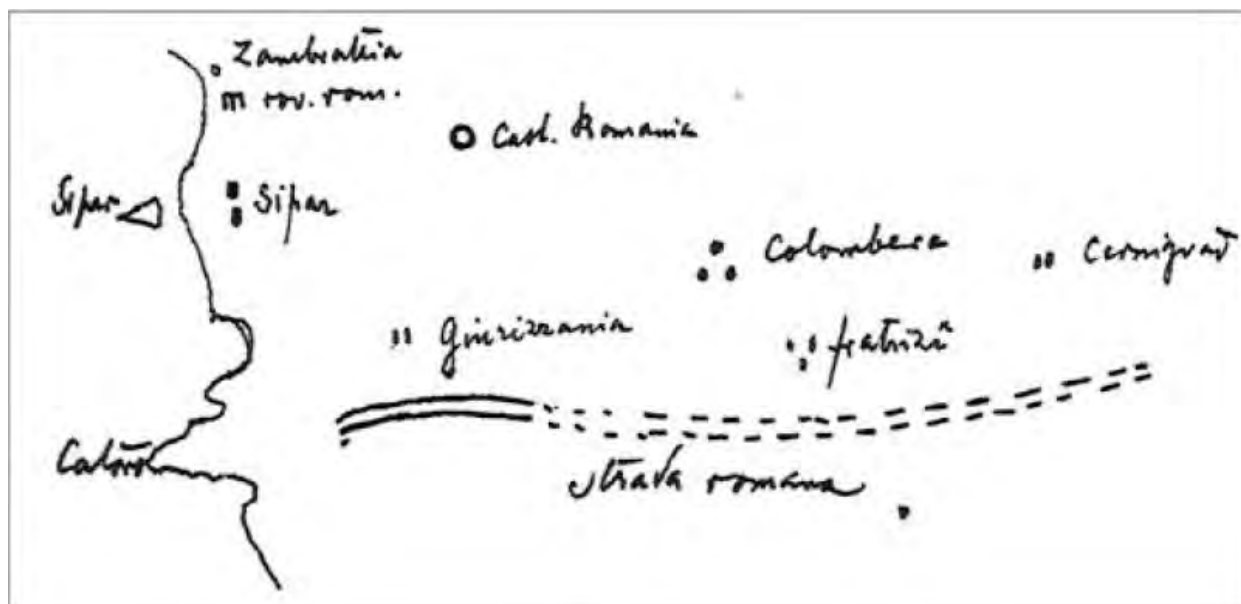 Zambrattia
m rov. rom.
Cast. Romania
Sipar
Sipar
Colombera
Cernigrad
Giurizzania
strada romana